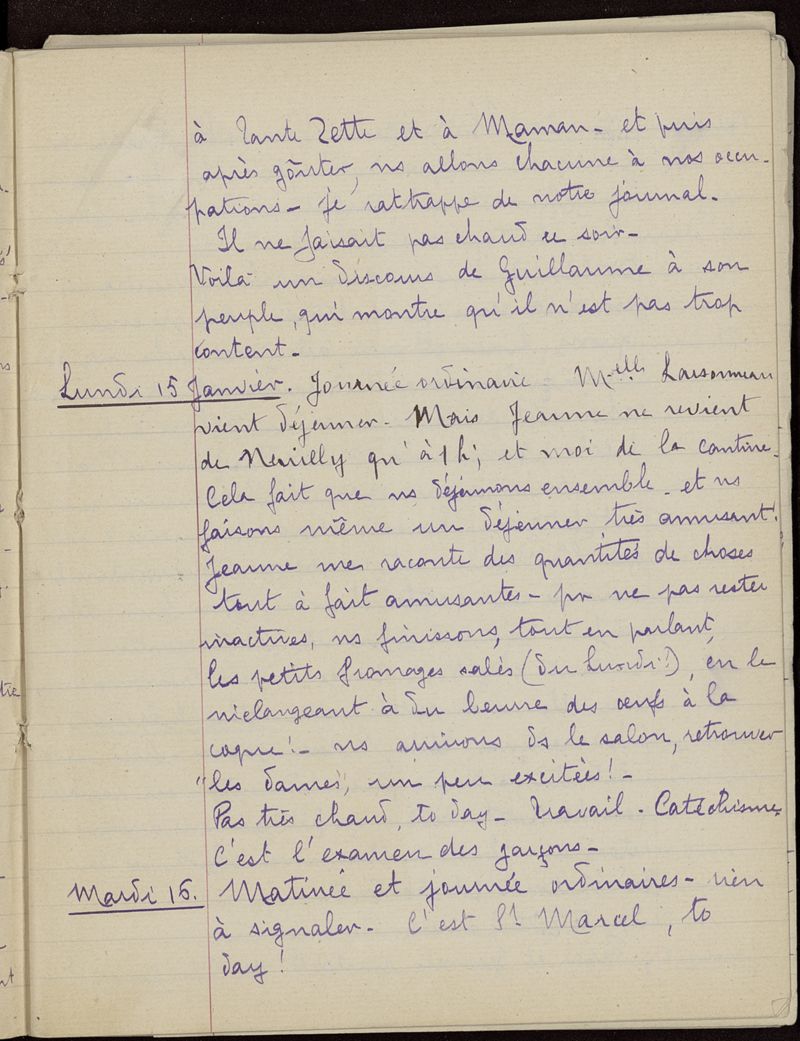 à Tante Zette et à Maman - et puis
après goûter, ns allons chacune à nos occu-
pations - je rattrappe de notre journal.
Il ne faisait pas chaud ce soir -
Voilà un discours de Guillaume à son
peuple, qui montre qu'il n'est pas trop
content -
Lundi 15 Janvier. Journée ordinaire Melle
vient déjeuner. Mais Jeanne ne revient
de Neuilly qu'à 1h ; et moi de la cantine.
Cela fait que ns déjeunons ensemble - et ns
faisons même un déjeuner très amusant !
Jeanne me raconte des quantités de choses
tout à fait amusantes - pr ne pas rester
inactives, ns finissons, tout en parlant,
les petits fromages salés (du Lundi !), en le
mélangeant à du beurre des œufs à la
coque ! - ns arrivons ds le salon, retrouver
"les dames", un peu excitées ! -
Pas très chaud, to day - Travail - Catéchisme.
C'est l'examen des garçons -
Mardi 16. Matinée et journée ordinaires - rien
à signaler - C'est St Marcel, to
day !